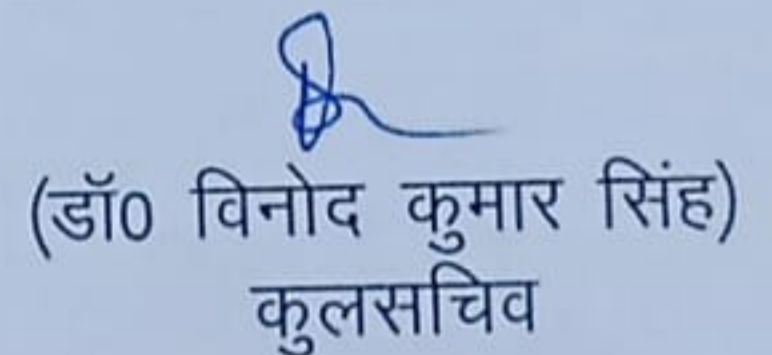 (डॉ0 विनोद कुमार सिंह)
कुलसचिव